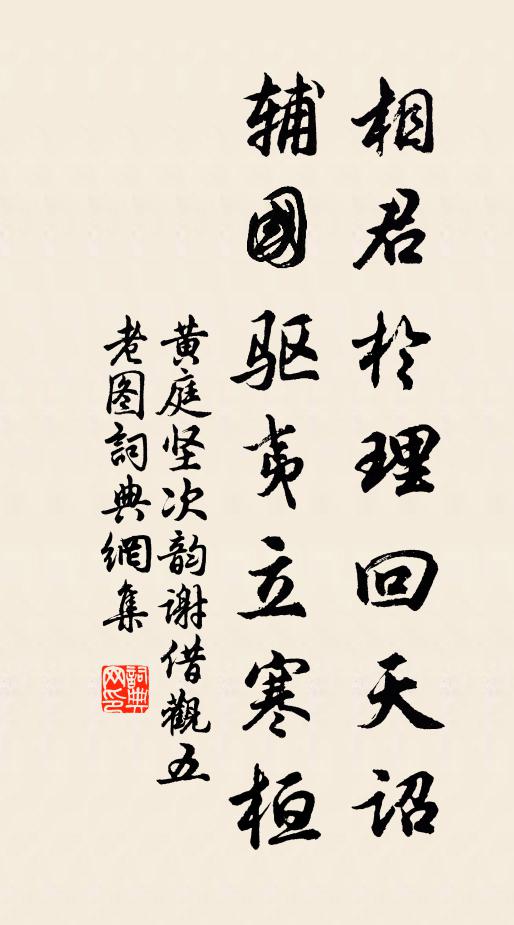 相君於理回天诏
辅國驱夷立寒桓
黄庭坚次韵谢借觀五
老图詞典網集
詞典
网印